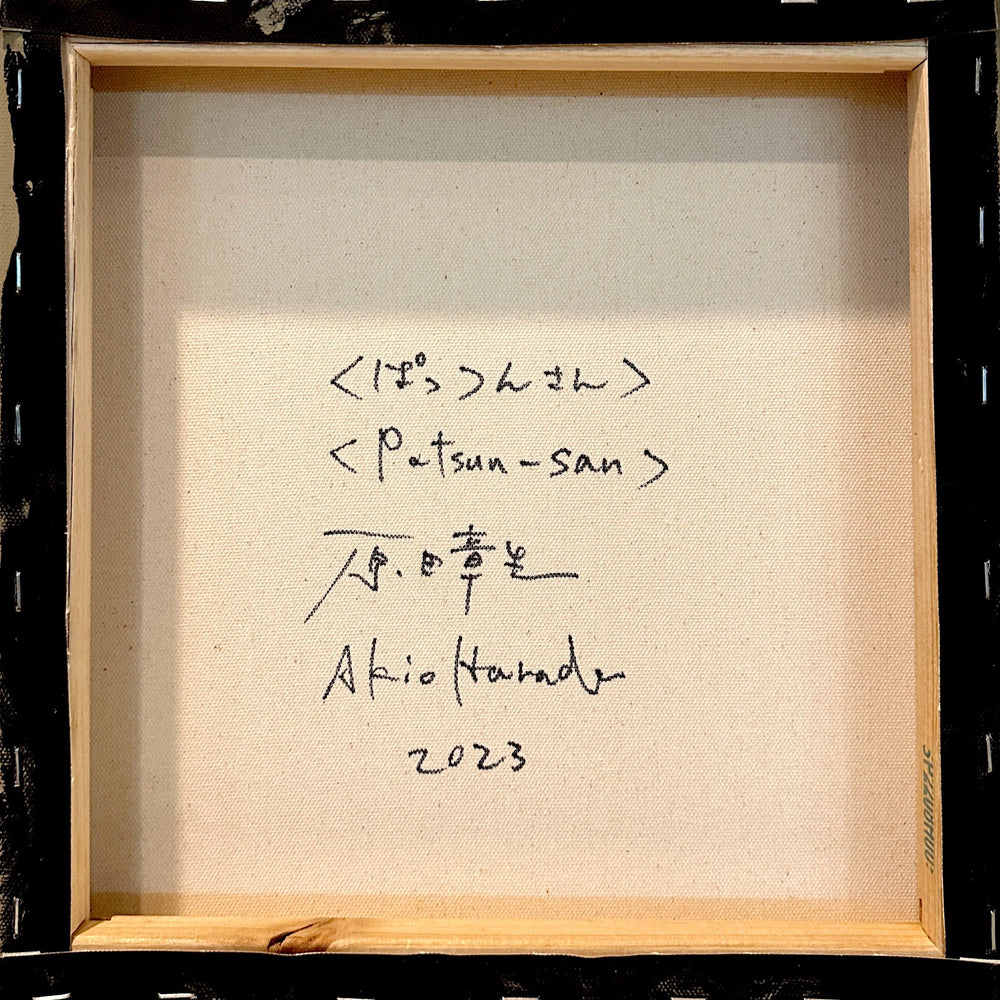 <ぱっつんさん>
<Patsun-san>
原田章生
Akio Harada
2023